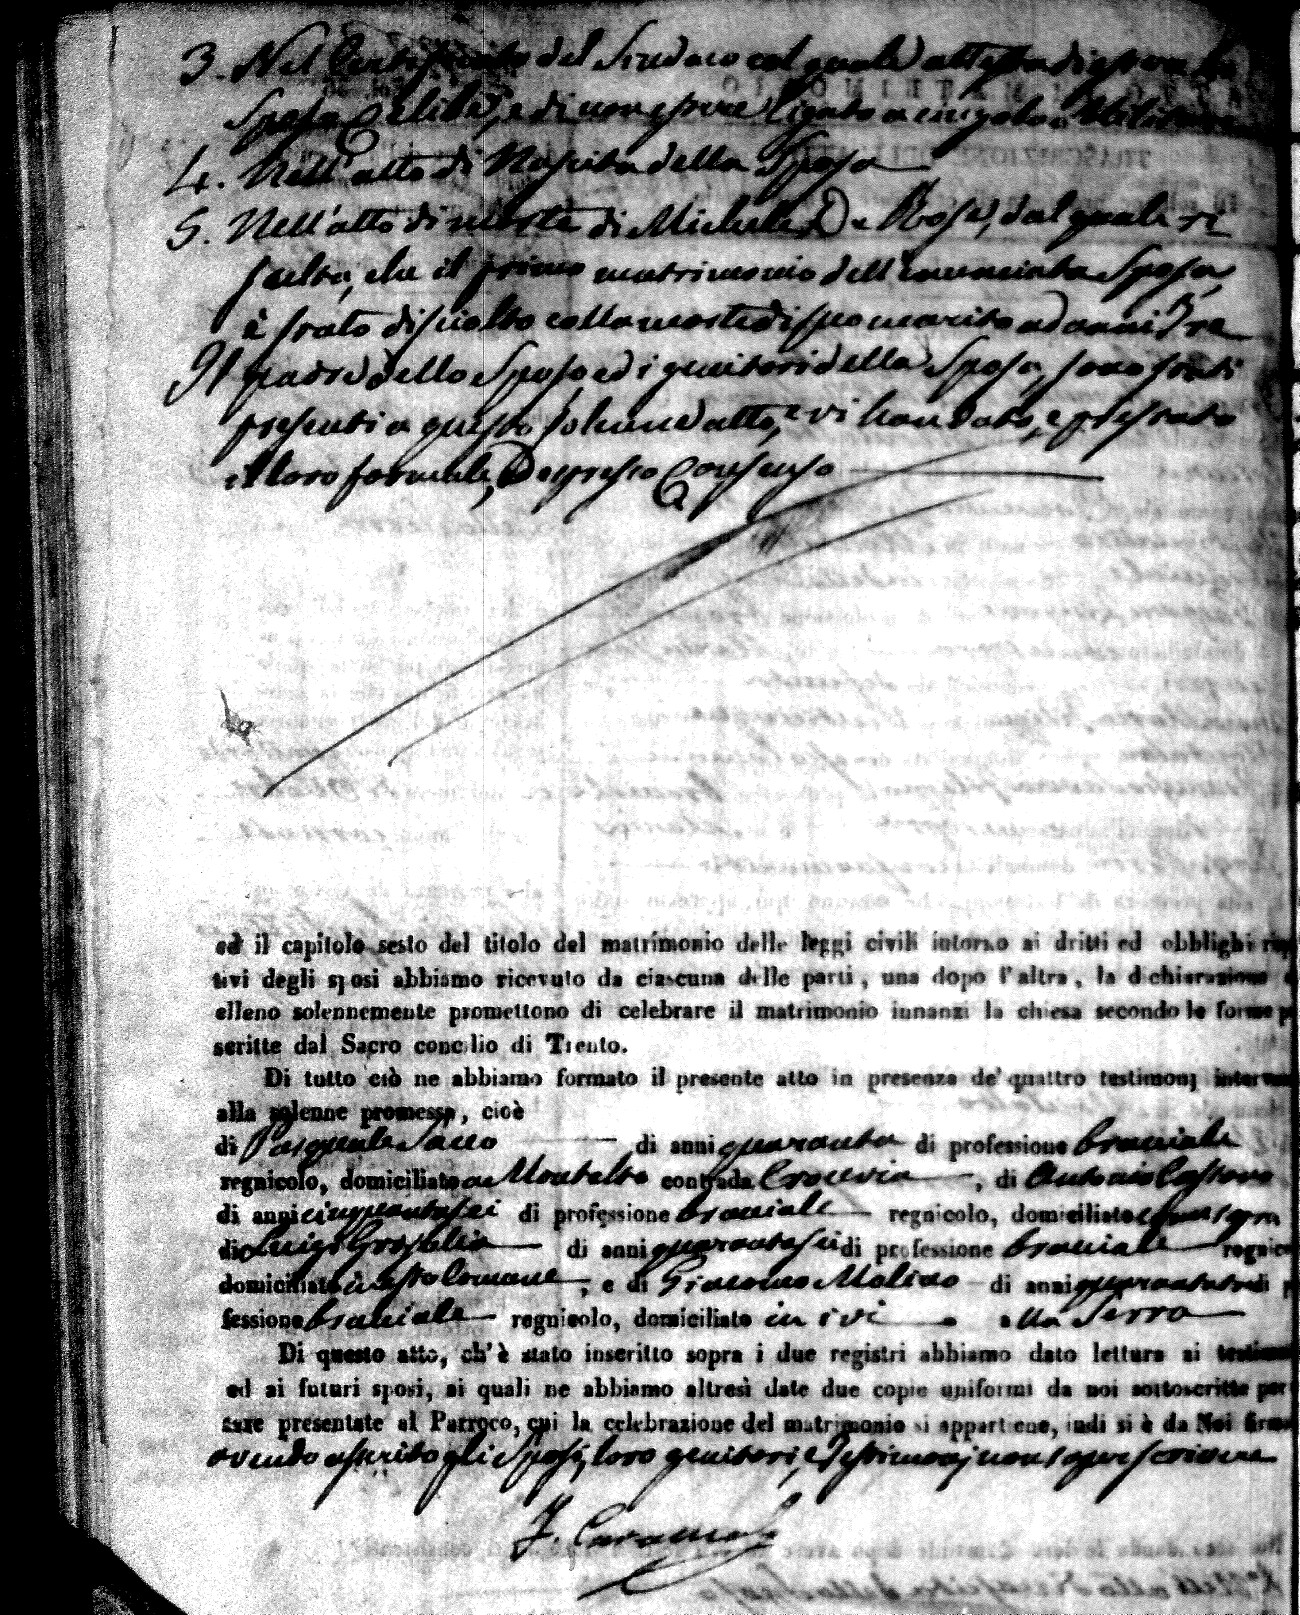 3. Nel Certificato del Sindaco col quale attesta di essere lo
Sposo Celibe, e di non essere ligato a cingolo Militare
4. Nell'atto di Nascita della Sposa
5. Nell'atto di morte di Michele De Rose, dal quale ri
sulta, che il primo matrimonio dell'enunciata Sposa,
è stato disciolto colla morte di suo marito ad anni Tre
Il padre dello Sposo ed i genitori della Sposa, sono stati
presenti a questo solenne atto, e vi han dato, e prestato
il loro formale, ed espresso Consenso
ed il capitolo sesto del titolo del matrimonio delle leggi civili intorno ai dritti ed obblighi
tivi degli sposi abbiamo ricevuto da ciascuna delle parti, una dopo l'altra, la dichiarazione
elleno solennemente promettono di celebrare il matrimonio innanzi la chiesa secondo le forme
scritte dal Sacro concilio di Trento.
Di tutto ciò ne abbiamo formato il presente atto in presenza de' quattro testimonj
alla solenne promessa, cioè
di Pasquale Sacco di anni quaranta di professione bracciale
regnicolo, domiciliato a Montalto contrada , di Antonio
di anni cinquantasei di professione bracciale regnicolo, domiciliato
di Luigi di anni quarantasei di professione bracciale
domiciliato , e di Giacomo Molino di anni quarantatre di
fessione bracciale regnicolo, domiciliato in ivi alla Serra
Di questo atto, ch'è stato inscritto sopra i due registri abbiamo dato lettura ai
ed ai futuri sposi, ai quali ne abbiamo altresì date due copie uniformi da noi sottoscritte per
sare presentate al Parroco, cui la celebrazione del matrimonio si appartiene, indi si è da Noi
avendo asserito gli Sposi, loro genitori, e Testimonj non saper scrivere